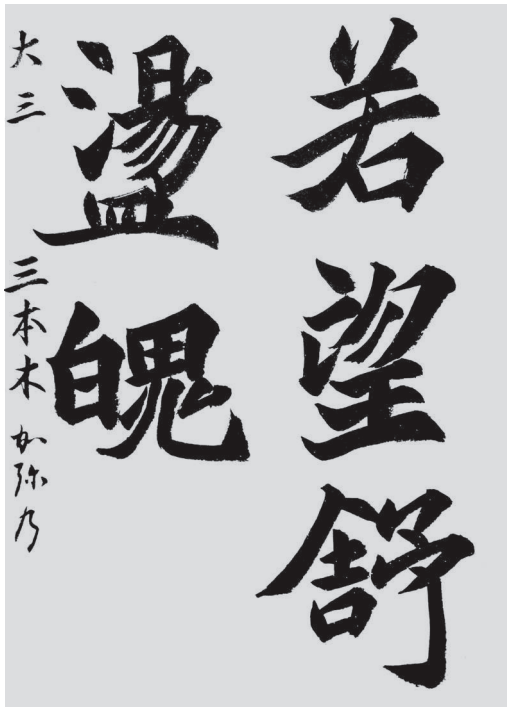 若望舒
盪魄
大三 三本木 か弥乃